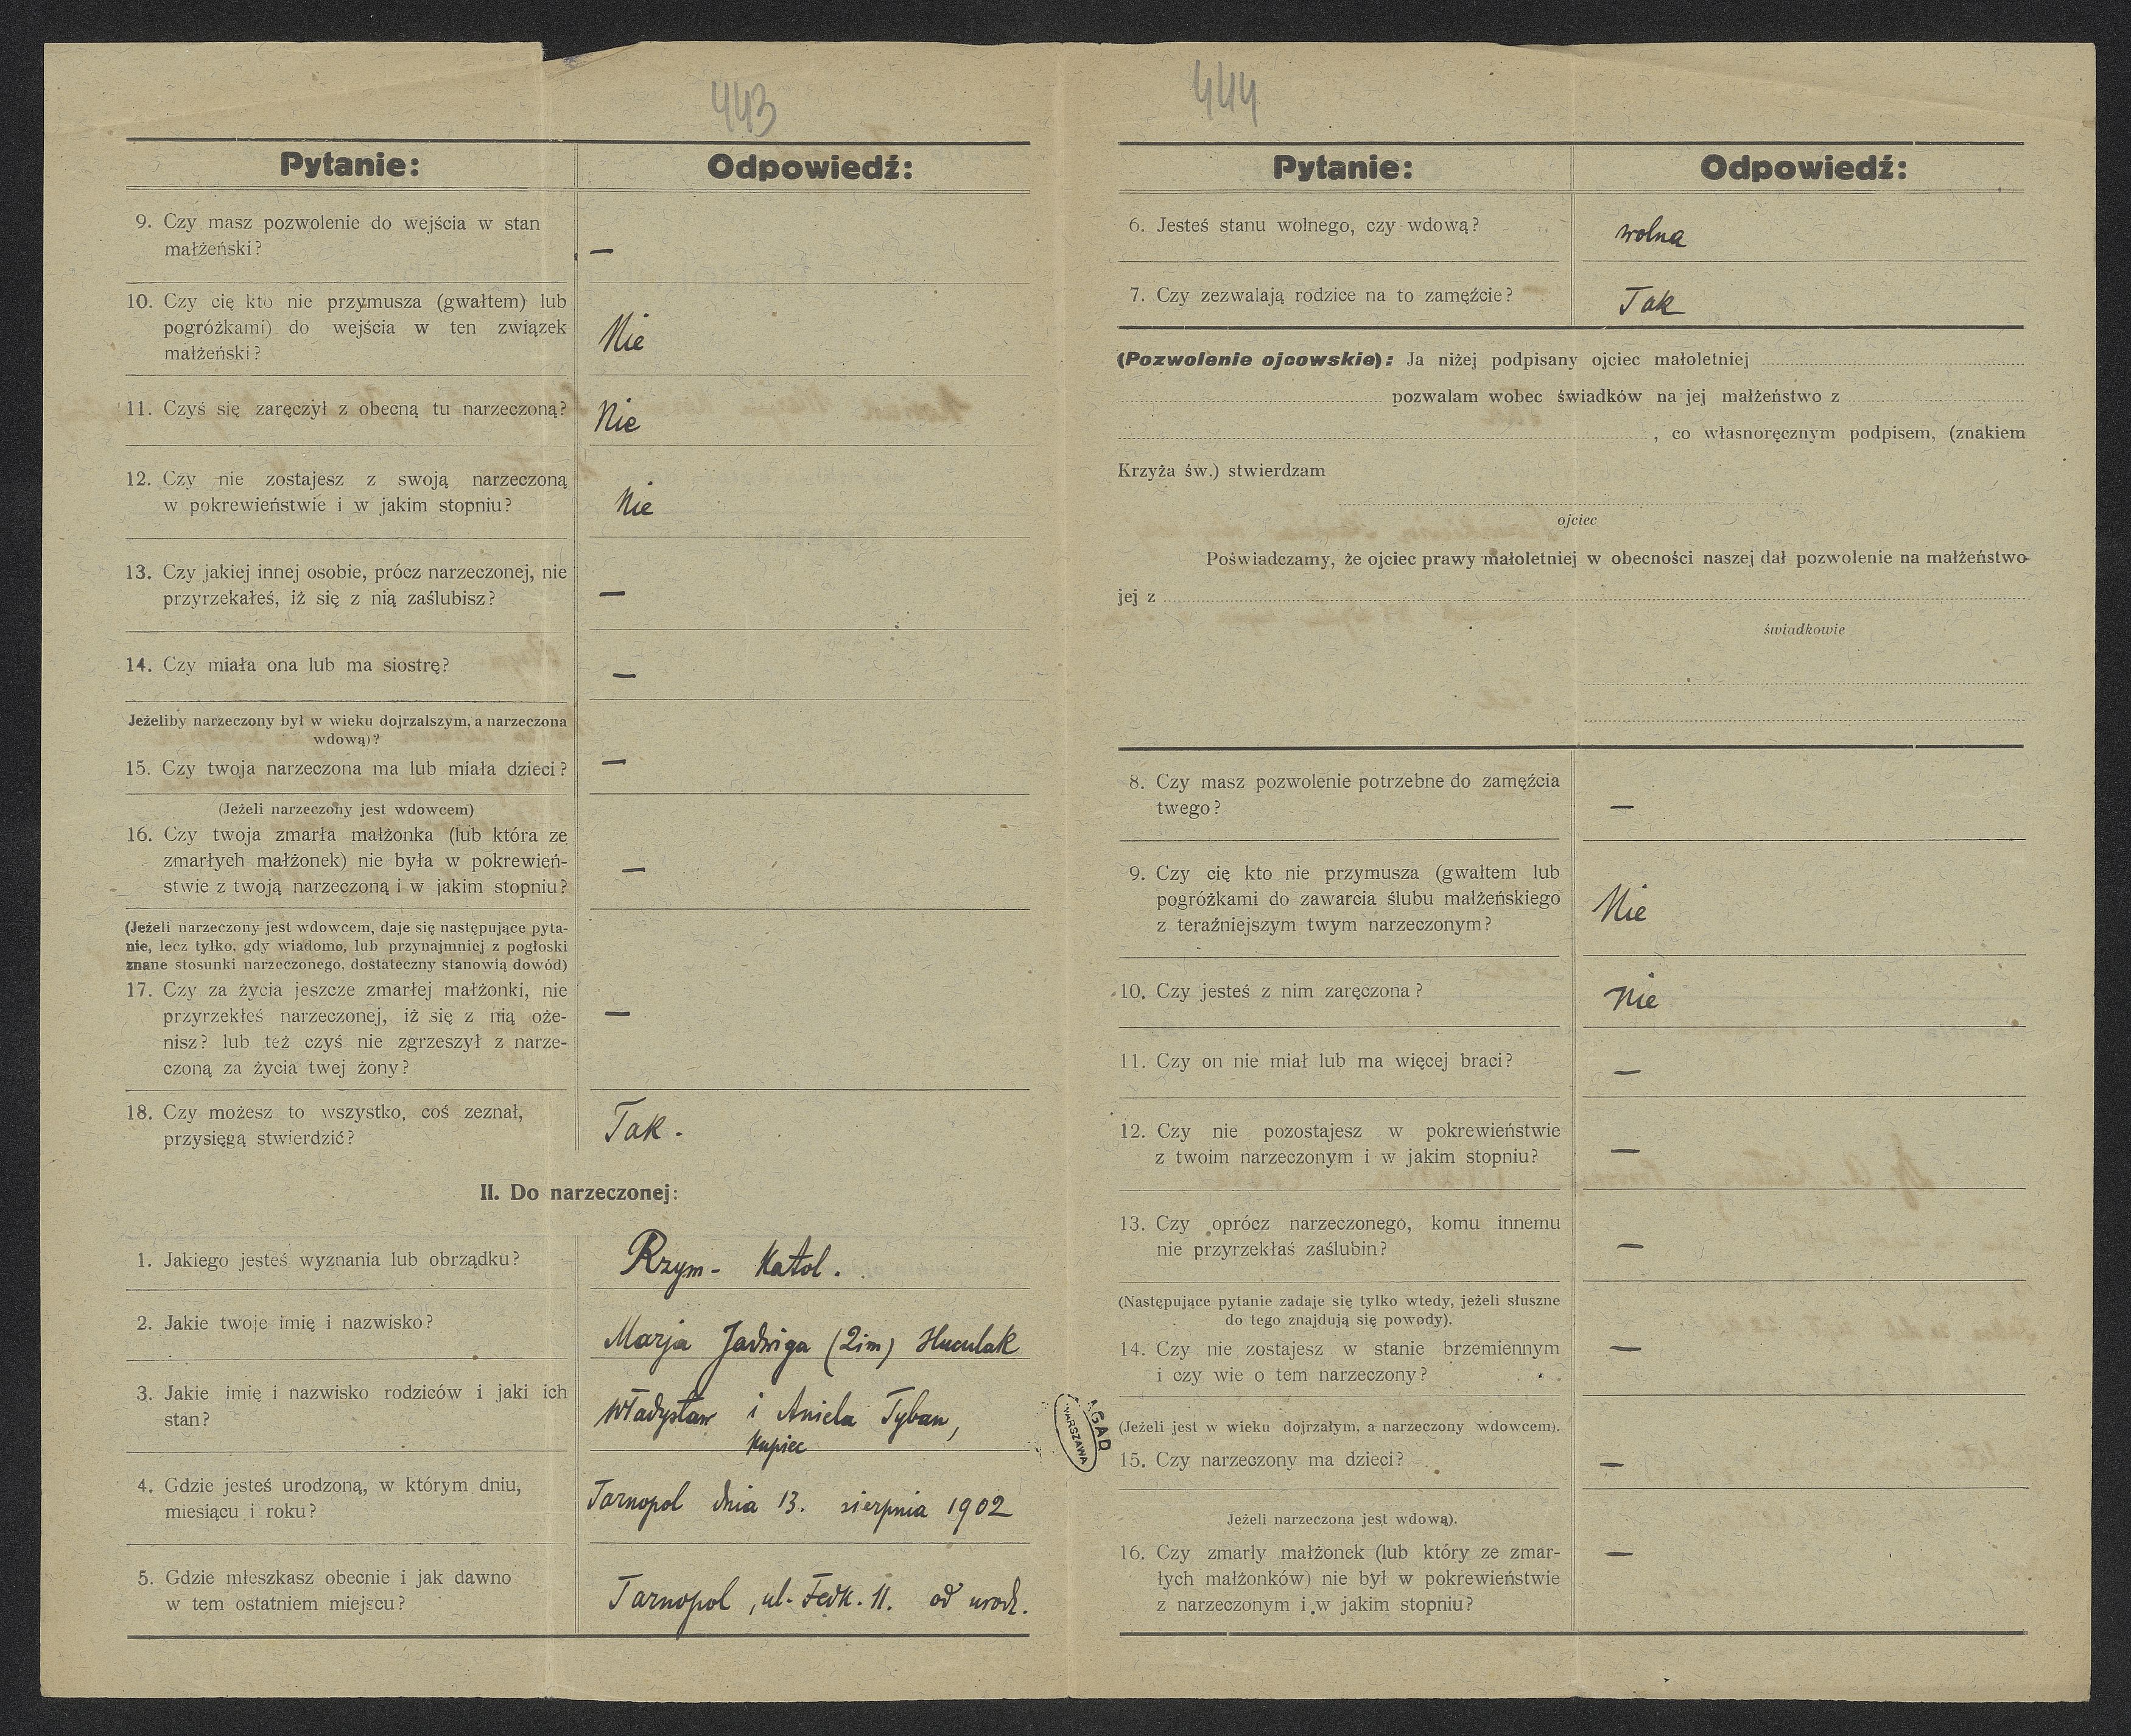 443
Pytanie: Odpowiedź:
9. Czy masz pozwolenie do wejścia w stan
małżeński? —
10. Czy cię kto nie przymusza (gwałtem) lub
pogróżkami) do wejścia w ten związek
małżeński? Nie
11. Czyś się zaręczył z obecną tu narzeczoną? Nie
12. Czy nie zostajesz z swoją narzeczoną
w pokrewieństwie i w jakim stopniu? Nie
13. Czy jakiej innej osobie, prócz narzeczonej, nie
przyrzekałeś, iż się z nią zaślubisz? —
14. Czy miała ona lub ma siostrę? —
Jeżeliby narzeczony był w wieku dojrzalszym, a narzeczona
wdową)?
15. Czy twoja narzeczona ma lub miała dzieci? —
(Jeżeli narzeczony jest wdowcem)
16. Czy twoja zmarła małżonka (lub która ze
zmarłych małżonek) nie była w pokrewień-
stwie z twoją narzeczoną i w jakim stopniu? —
(Jeżeli narzeczony jest wdowcem, daje się następujące pyta-
nie, lecz tylko, gdy wiadomo, lub przynajmniej z pogłoski
znane stosunki narzeczonego, dostateczny stanowią dowód)
17. Czy za życia jeszcze zmarłej małżonki, nie
przyrzekłeś narzeczonej, iż się z nią oże-
nisz? lub też czyś nie zgrzeszył z narze-
czoną za życia twej żony? —
18. Czy możesz to wszystko, coś zeznał,
przysięgą stwierdzić? Tak.
II. Do narzeczonej:
1. Jakiego jesteś wyznania lub obrządku? Rzym- Katol.
2. Jakie twoje imię i nazwisko? Marja Jadwiga (2im) Huculak
3. Jakie imię i nazwisko rodziców i jaki ich
stan? Władysław i Aniela Tyban,
kupiec
4. Gdzie jesteś urodzoną, w którym dniu,
miesiącu i roku? Tarnopol dnia 13. sierpnia 1902
5. Gdzie mieszkasz obecnie i jak dawno
w tem ostatniem miejscu? Tarnopol, ul. Fedk. 11. od urodz.
444
Pytanie: Odpowiedź:
6. Jesteś stanu wolnego, czy wdową? wolna
7. Czy zezwalają rodzice na to zamęźcie? Tak
(Pozwolenie ojcowskie): Ja niżej podpisany ojciec małoletniej
pozwalam wobec świadków na jej małżeństwo z
, co własnoręcznym podpisem, (znakiem
Krzyża św.) stwierdzam
ojciec
Poświadczamy, że ojciec prawy małoletniej w obecności naszej dał pozwolenie na małżeństwo
jej z
świadkowie
8. Czy masz pozwolenie potrzebne do zamęźcia
twego? —
9. Czy cię kto nie przymusza (gwałtem lub
pogróżkami do zawarcia ślubu małżeńskiego
z teraźniejszym twym narzeczonym? Nie
10. Czy jesteś z nim zaręczona? Nie
11. Czy on nie miał lub ma więcej braci? —
12. Czy nie pozostajesz w pokrewieństwie
z twoim narzeczonym i w jakim stopniu? —
13. Czy oprócz narzeczonego, komu innemu
nie przyrzekłaś zaślubin? —
(Następujące pytanie zadaje się tylko wtedy, jeżeli słuszne
do tego znajdują się powody).
14. Czy nie zostajesz w stanie brzemiennym
i czy wie o tem narzeczony? —
(Jeżeli jest w wieku dojrzałym, a narzeczony wdowcem).
15. Czy narzeczony ma dzieci? —
Jeżeli narzeczona jest wdową).
16. Czy zmarły małżonek (lub który ze zmar-
łych małżonków) nie był w pokrewieństwie
z narzeczonym i w jakim stopniu? —
AGAD
WARSZAWA